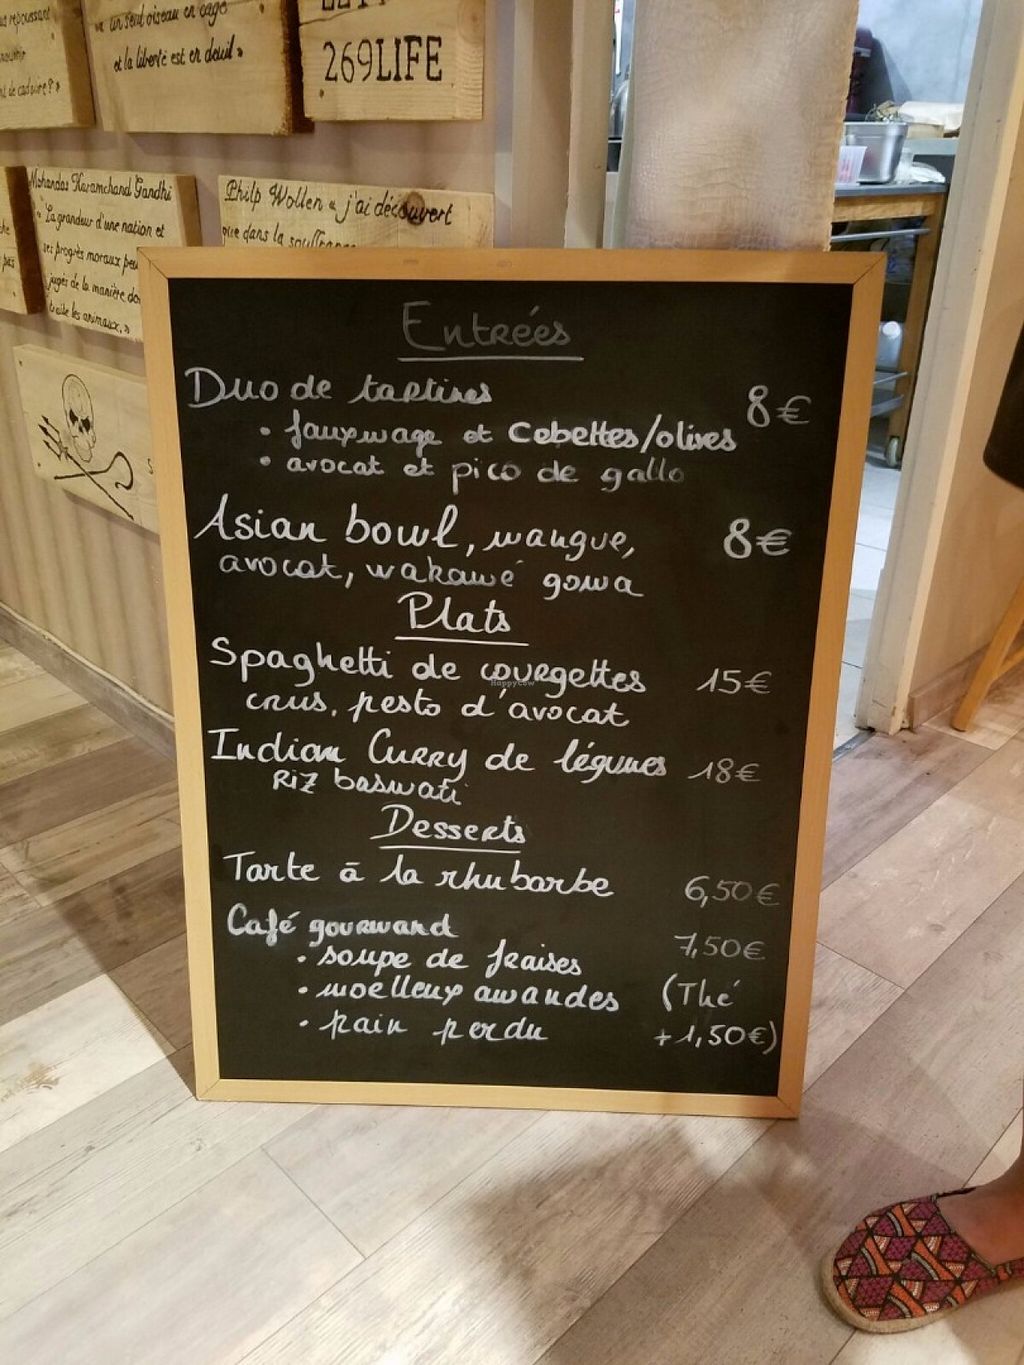 repoussant
« un seul oiseau en cage
et la liberté est en deuil »
269LIFE
Mohandas Karamchand Gandhi
"La grandeur d'une nation et
ses progrès moraux
jugés de la manière
traite les animaux. »
Philp Wollen « j'ai découvert
que dans la
Entrées
Duo de tartines 8€
• fauxmage et cebettes/olives
• avocat et pico de gallo
Asian bowl, mangue, 8€
avocat, wakamé goma
Plats
Spaghetti de courgettes 15€
HappyCow
crus, pesto d'avocat
Indian Curry de légumes 18€
Riz basmati
Desserts
Tarte à la rhubarbe 6,50€
Café gourmand 7,50€
• soupe de fraises
• moelleux amandes (Thé
• pain perdu +1,50€)